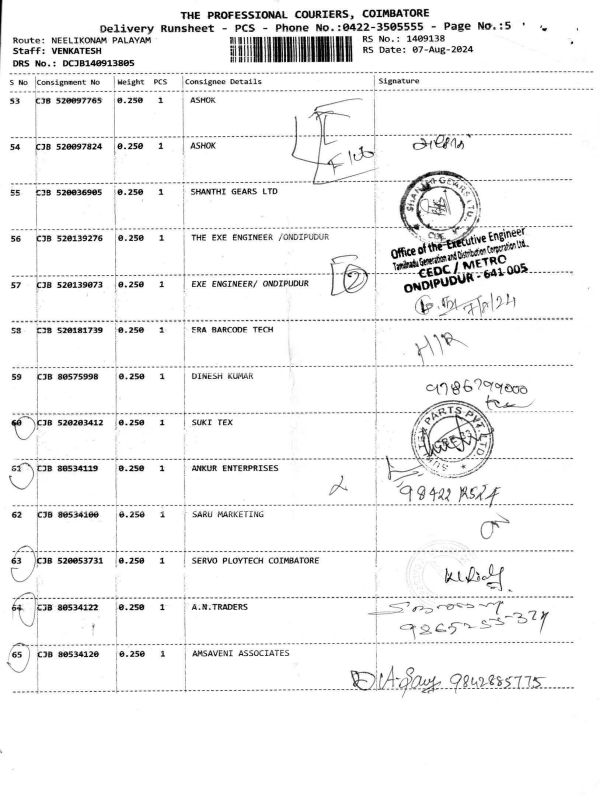 THE PROFESSIONAL COURIERS, COIMBATORE
Delivery Runsheet - PCS - Phone No.:0422-3505555 - Page No.:5
Route: NEELIKONAM PALAYAM
RS No.: 1409138
Staff: VENKATESH
RS Date: 07-Aug-2024
DRS No.: DCJB140913805
S No Consignment No Weight PCS Consignee Details Signature
53 CJB 520097765 0.250 1 ASHOK
54 CJB 520097824 0.250 1 ASHOK
55 CJB 520036905 0.250 1 SHANTHI GEARS LTD
SHANTHI GEARS LTD.
56 CJB 520139276 0.250 1 THE EXE ENGINEER /ONDIPUDUR
Office of the Executive Engineer
Tamilnadu Generation and Distribution Corporation Ltd.,
CEDC / METRO
ONDIPUDUR - 641 005
57 CJB 520139073 0.250 1 EXE ENGINEER/ ONDIPUDUR
2
58 CJB 520181739 0.250 1 ERA BARCODE TECH
59 CJB 80575998 0.250 1 DINESH KUMAR
9786799000
60 CJB 520203412 0.250 1 SUKI TEX
PARTS PVT. LTD.
61 CJB 80534119 0.250 1 ANKUR ENTERPRISES
62 CJB 80534100 0.250 1 SARU MARKETING
63 CJB 520053731 0.250 1 SERVO PLOYTECH COIMBATORE
64 CJB 80534122 0.250 1 A.N.TRADERS
65 CJB 80534120 0.250 1 AMSAVENI ASSOCIATES
9842885775